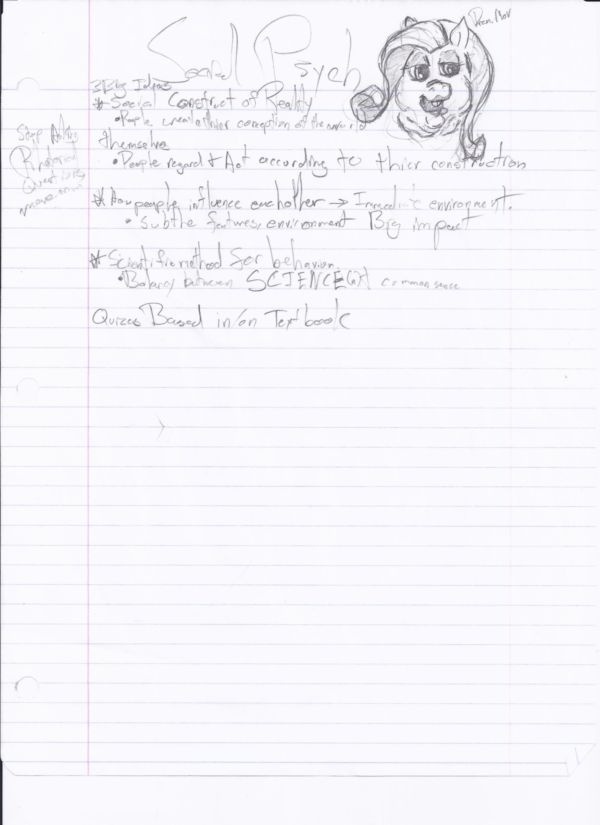 Social Psych
3 Big Ideas
* Social Construct of Reality
• People thier conception of the
themselve
• People regard & Act according to thier construction
* How people influence eachother → environment.
• Subtle features, environment Big impact
* Scientific method for behavior
• between SCIENCE common sense
Quizes Based in/on Textbook
Stop Asking
Rhetorical
Questions
move on